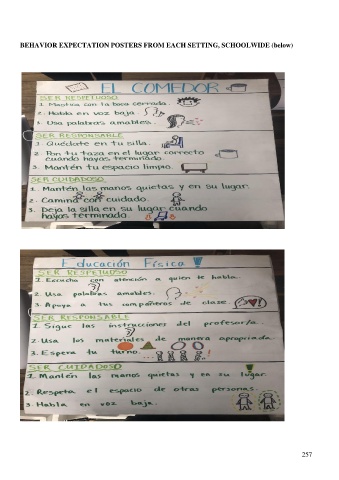 BEHAVIOR EXPECTATION POSTERS FROM EACH SETTING, SCHOOLWIDE (below)
EL COMEDOR
SER RESPETUOSO
1. Mastica con la boca cerrada.
2. Habla en voz baja
3. Usa palabras amables.
SER RESPONSABLE
1. Quédate en tu silla.
2. Pon tu taza en el lugar correcto
cuando hayas terminado.
3. Mantén tu espacio limpio.
SER CUIDADOSO
1. Mantén las manos quietas y en su lugar.
2. Camina con cuidado.
3. Deja la silla en su lugar cuando
hayas terminado.
Educación Física
SER RESPETUOSO
1. Escucha con atención a quien te habla.
2. Usa palabras amables.
3. Apoya a tus compañeros de clase.
SER RESPONSABLE
1. Sigue las instrucciones del profesor/a.
2. Usa los materiales de manera apropiada.
3. Espera tu turno...
SER CUIDADOSO
1. Mantén las manos quietas y en su lugar.
2. Respeta el espacio de otras personas.
3. Habla en voz baja.
257